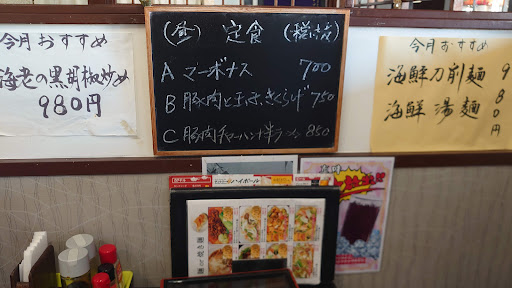 今月おすすめ
海老の黒胡椒炒め
980円
(昼) 定食 (税込)
A マーボナス 700
B 豚肉と玉子、きくらげ 750
C 豚肉チャーハン半ラーメン 850
今月おすすめ
海鮮刀削麺
海鮮湯麺
980円
ハイボール